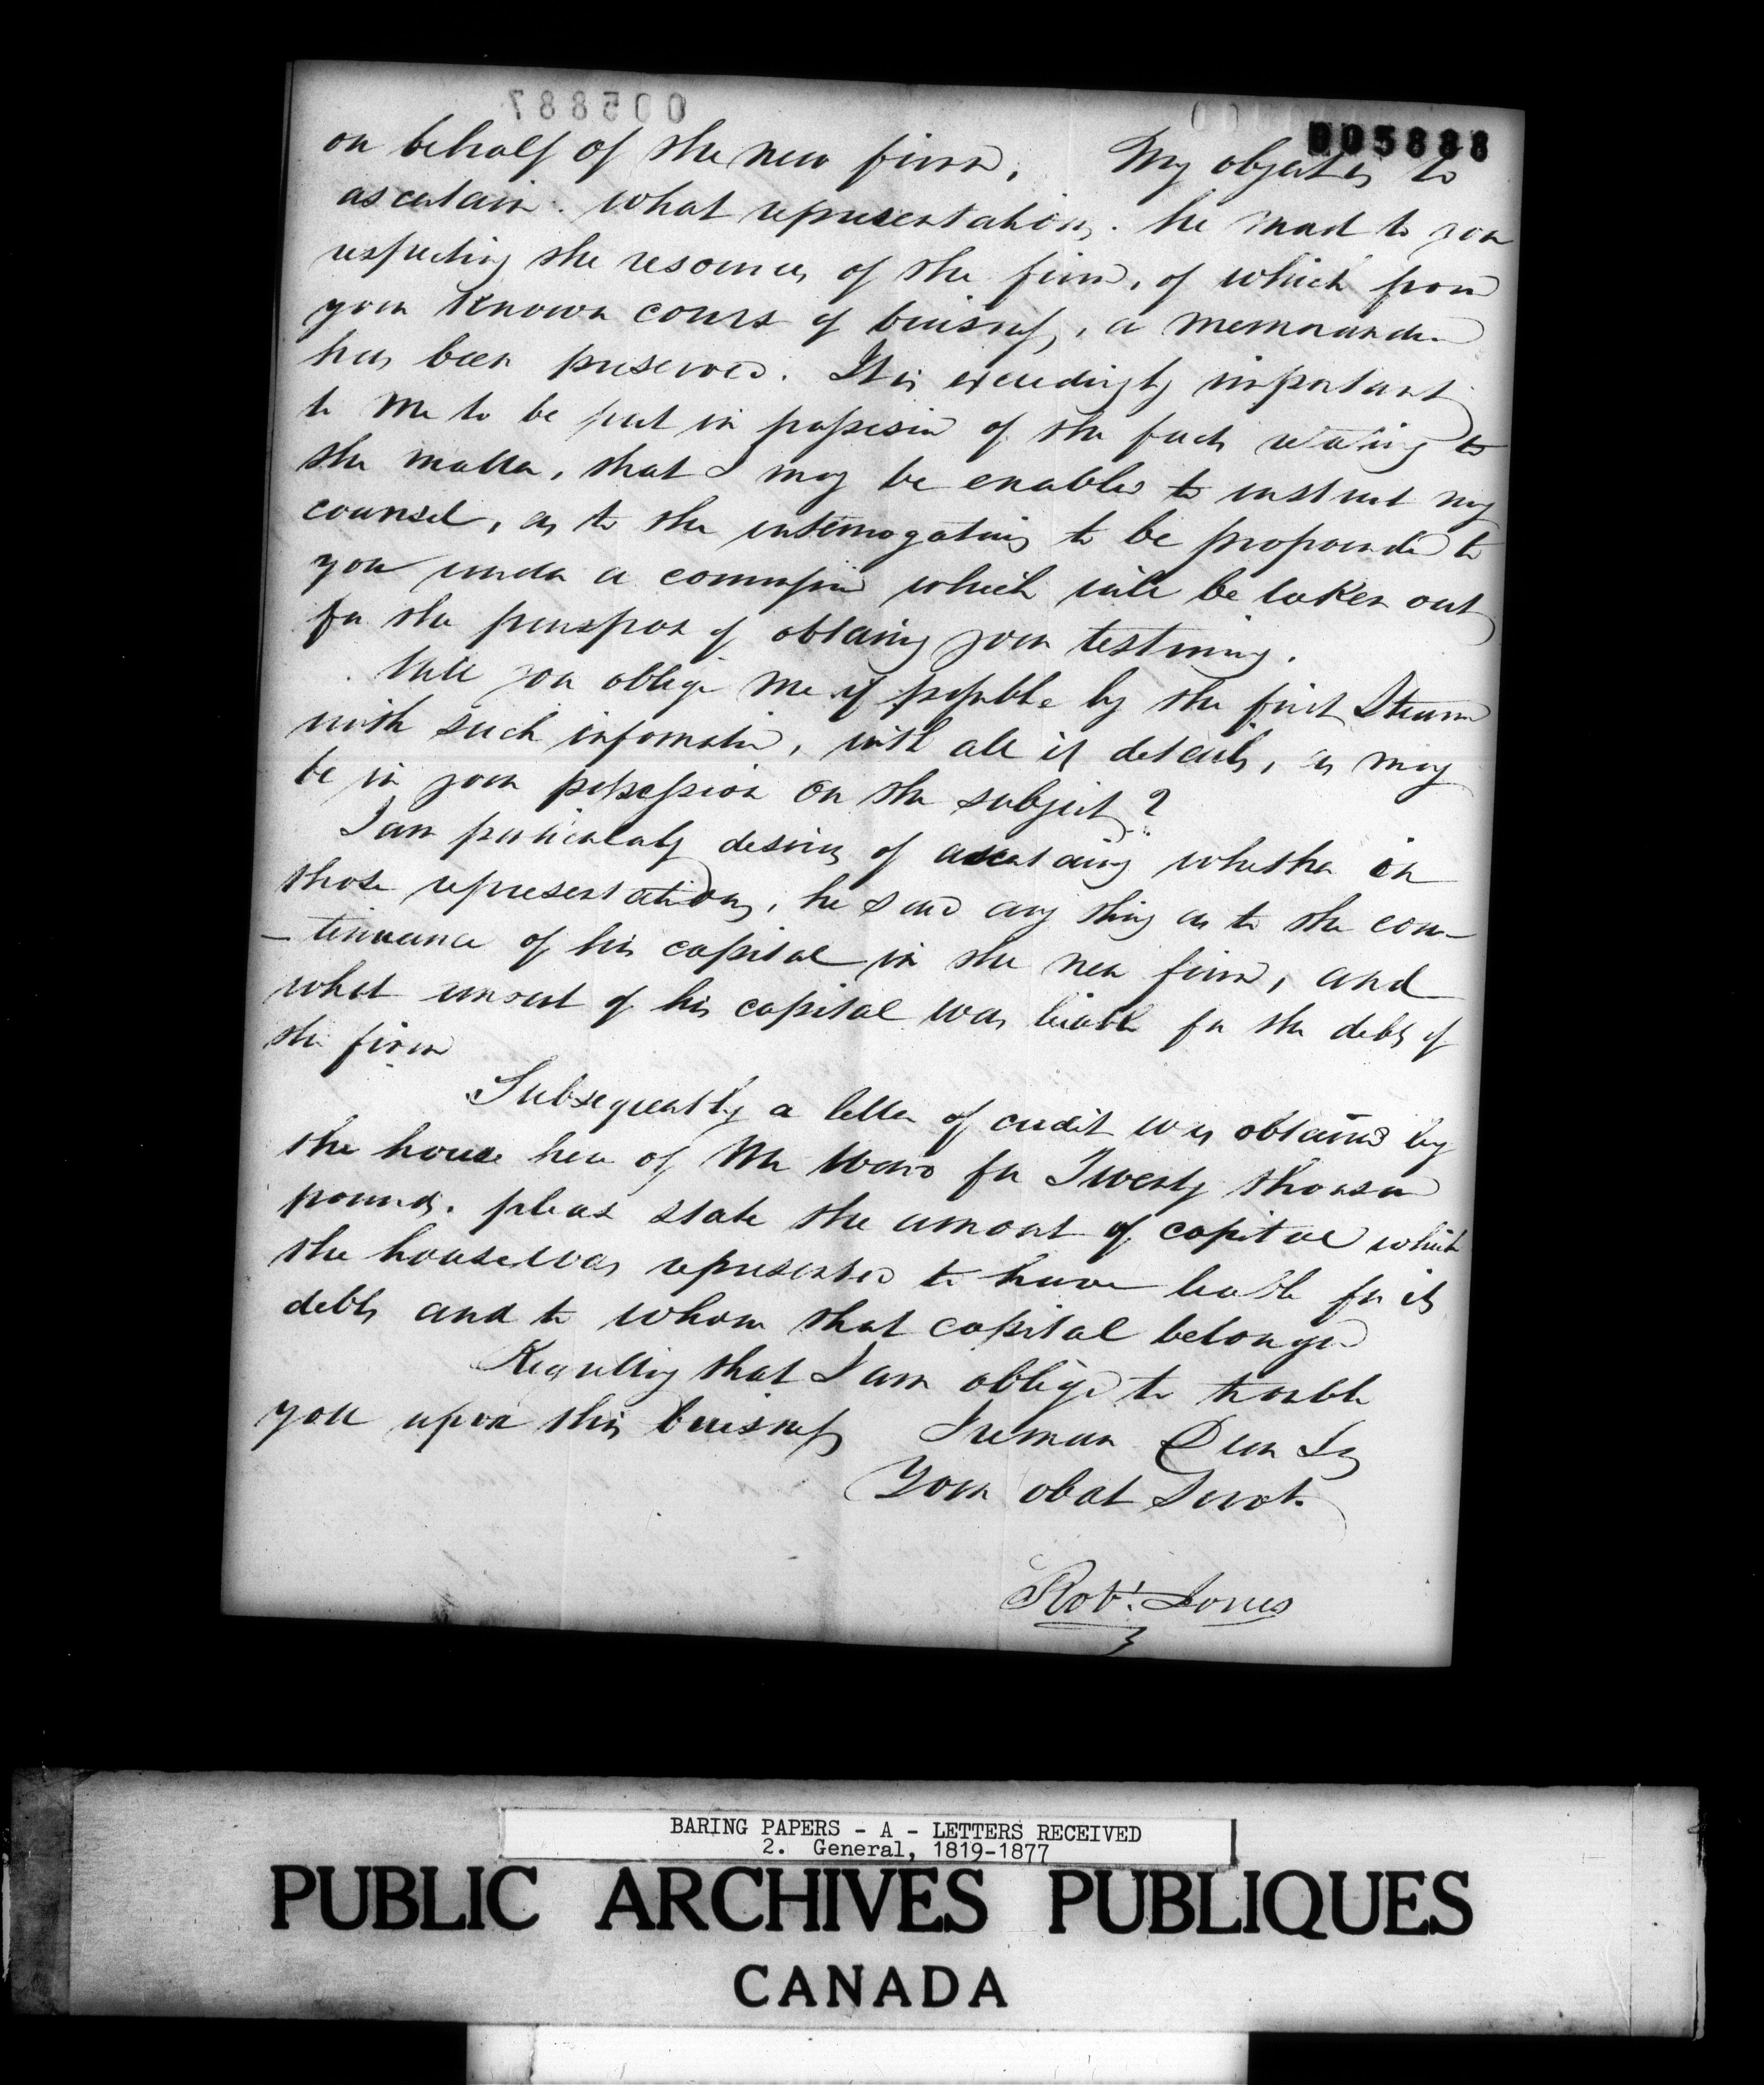 005887
005888
on behalf of the new firm. My object is to
ascertain what representations he mad to you
respecting the resources of the firm, of which from
your known cours of buisness, a memorandum
has been preserved. It is exceedingly important
to me to be put in possesion of the facts relating to
the matter, that I may be enabled to instruct my
counsel, as to the interrogatories to be propounded to
you under a commission which will be taken out
for the purspose of obtaining your testimony.
Will you oblige me if possible by the first Steamer
with such information, with all its details, as may
be in your possession on the subject?
I am particularly desirous of ascertaining whether in
those representations, he said any thing as to the con-
-tinuance of his capital in the new firm, and
what amount of his capital was liable for the debts of
the firm
Subsequently a letter of credit was obtained by
the house here of Mr Ward for Twenty thousand
pounds. please state the amount of capital which
the house was represented to have liable for its
debts and to whom that capital belonged
Regretting that I am obliged to trouble
you upon this buisness I remain Dear Sir
Your obdt Servt.
Robt. Jones
BARING PAPERS - A - LETTERS RECEIVED
2. General, 1819-1877
PUBLIC ARCHIVES PUBLIQUES
CANADA